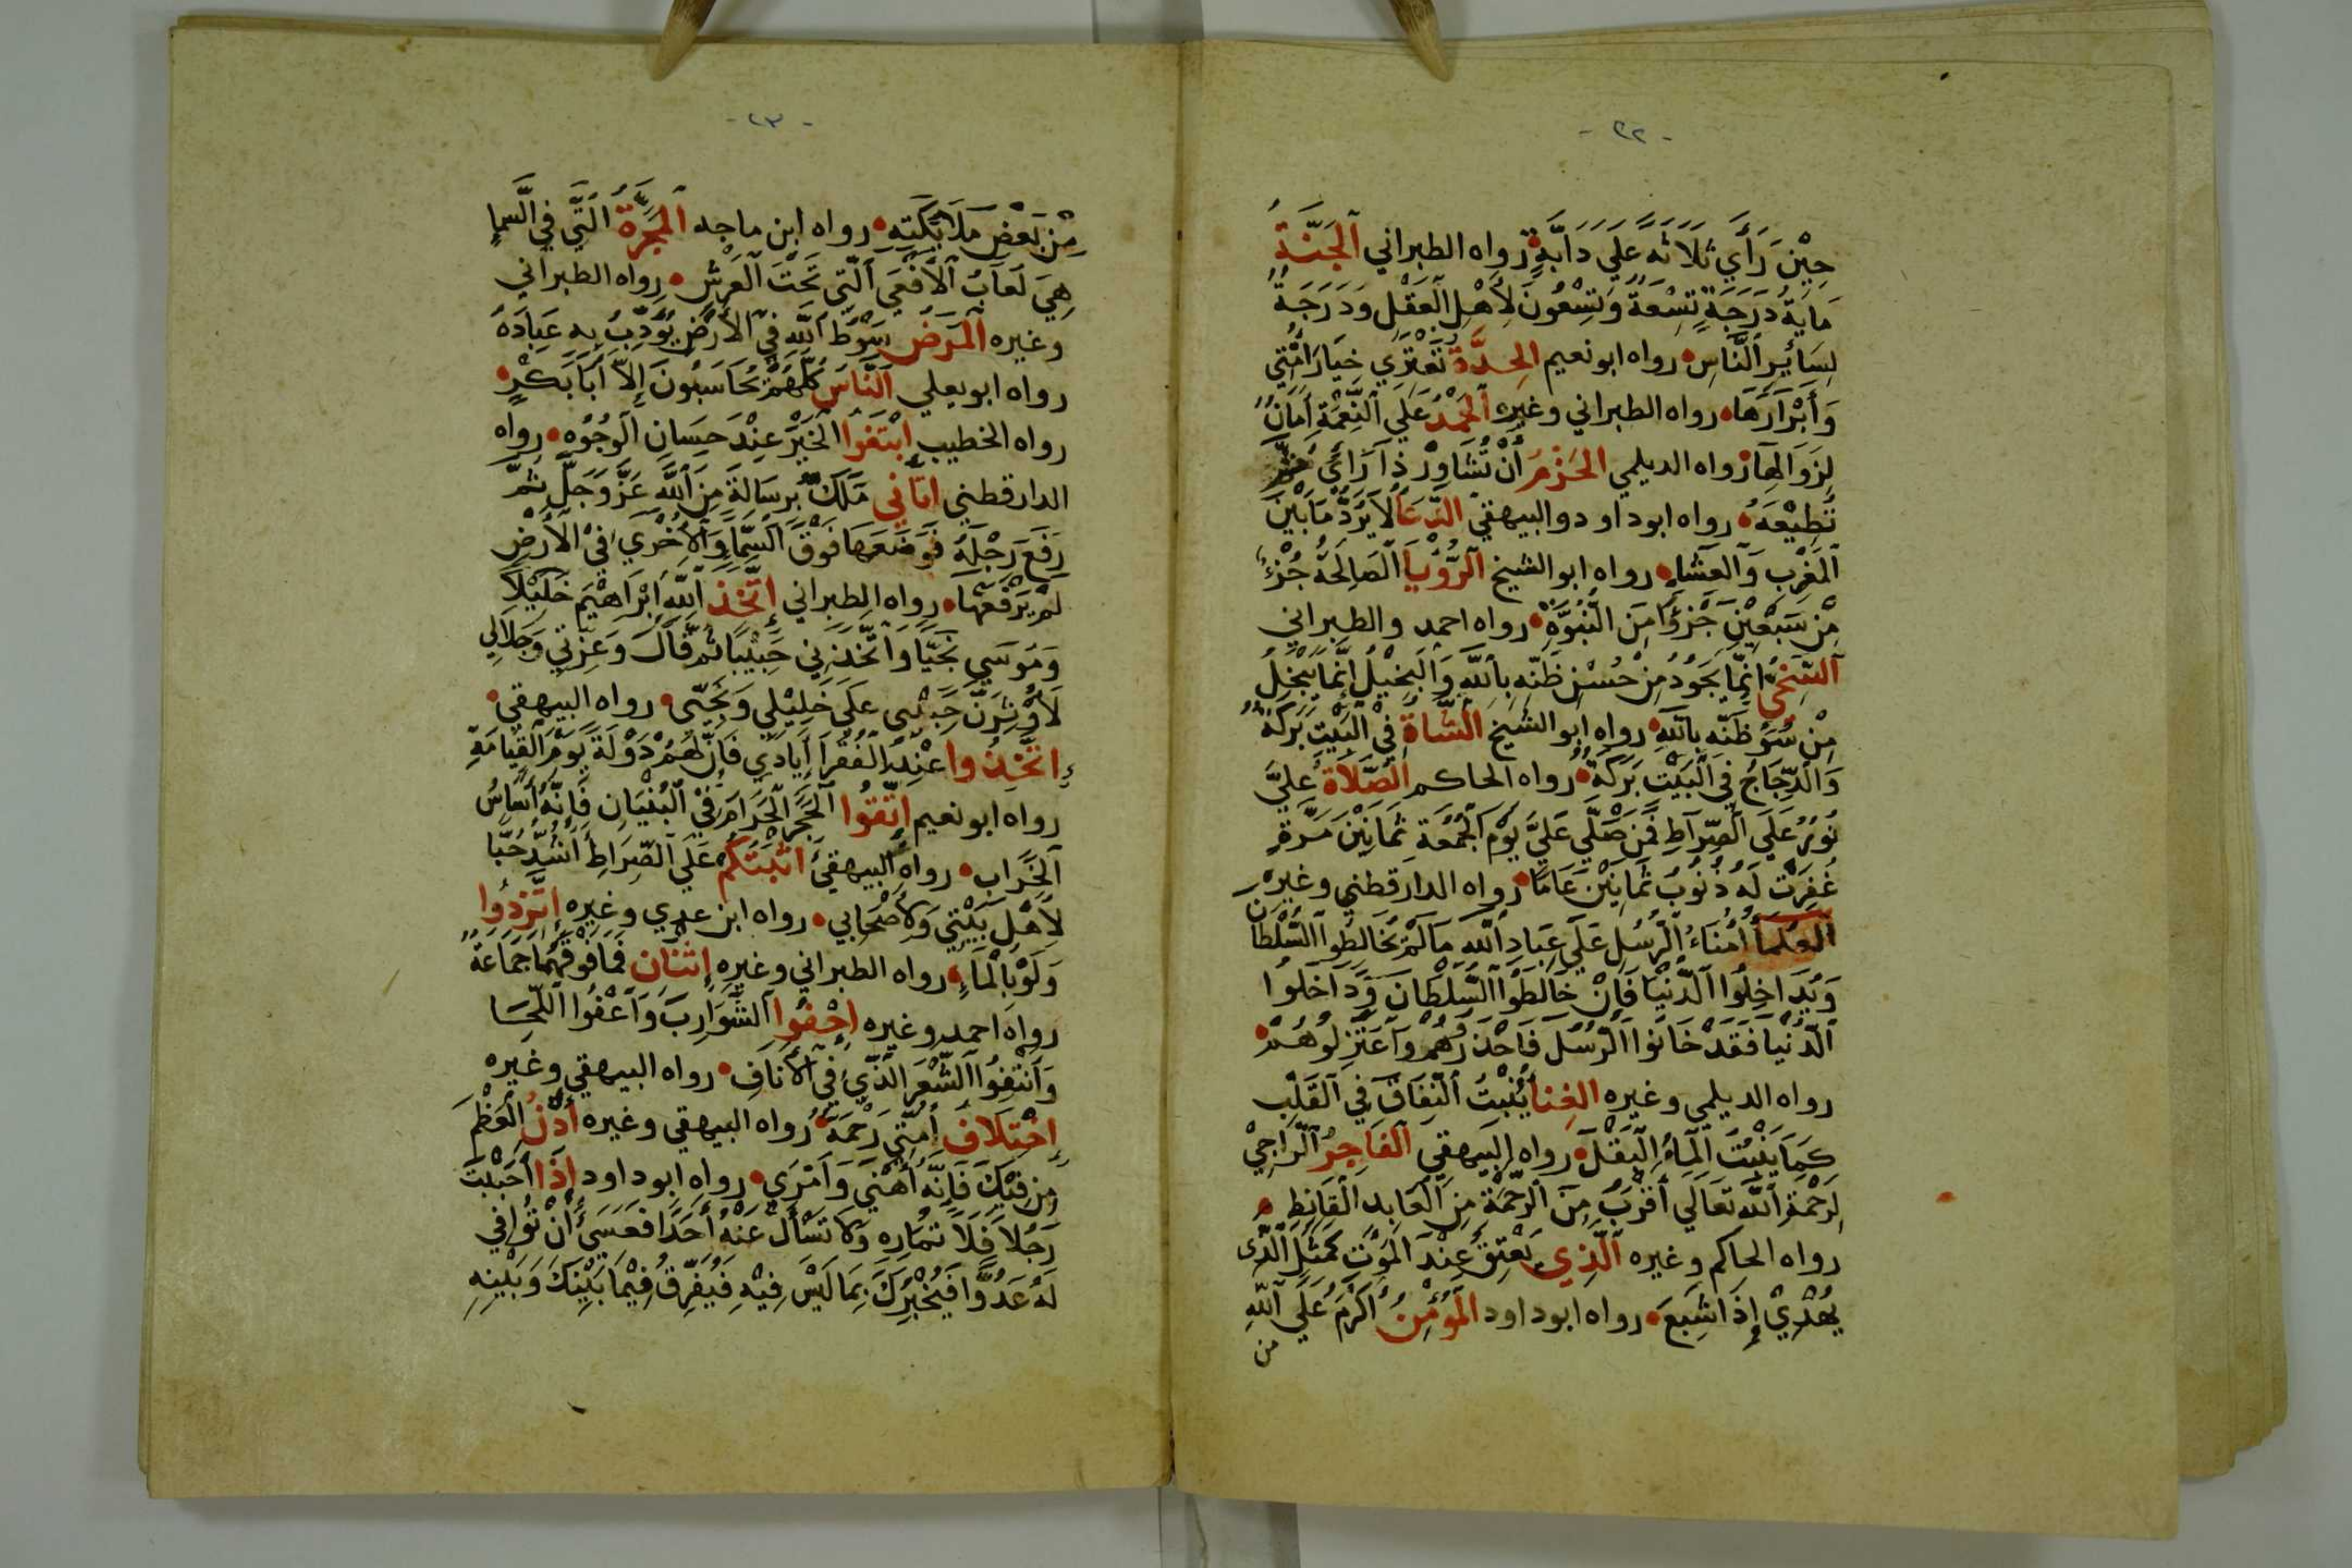 -٢٢-
حِيْنَ رَأَي ثَلَاثَهً عَلَي دَابَّةٍ رواه الطبراني اَلْجَنَّةُ
مَايَةُ دَرَجَةٍ تِسْعَةٌ وَتِسْعُونَ لِأَهْلِ الْعَقْلِ وَدَرَجَةٌ
لِسَائِرِ النَّاسِ رواه ابو نعيم الحِدَّةُ تَعْتَرِي خِيَارَ أُمَّتِي
وَأَبْرَارَهَا رواه الطبراني وغيره اَلْحَمْدُ عَلَي النِّعْمَةِ أَمَانٌ
لِزَوَالِهَا رواه الديلمي الحَزْمُ أَنْ تُشَاوِرَ ذَا رَائيٍ ثُمَّ
تُطِيْعَهُ رواه ابو داود والبيهقي الدُّعَاُ لَا يُرَدُّ مَا بَيْنَ
الْمَغْرِبِ وَالْعَشَاءِ رواه ابو الشيخ اَلرُّؤْيَا الصَالِحَةُ جُزْءٌ
مِنْ سَبْعِيْنَ جُزْؤًا مِنَ النُّبُوَّةِ رواه احمد والطبراني
اَلسَّخِيُّ إِنَّمَا يَجُوْدُ مِنْ حُسْنِ ظَنِّهِ بِاللَّهِ وَالْبَخِيْلُ إِنَّمَا يَبْخَلُ
مِنْ سُوءِ ظَنِّهِ بِاللَّهِ رواه ابو الشيخ الشَّاةُ فِيْ الْبَيْتِ بَرَكَةٌ
وَالدَّجَاجُ فِي الْبَيْتِ بَرَكَةٌ رواه الحاكم اَلصَّلَاةُ عَلَيَّ
نُورٌ عَلَي الصِّرَاطِ فَمَنْ صَلَّي عَلَيَّ يَوْمَ الْجُمُعَةِ ثَمَانِيْنَ مَرَّةٍ
غُفِرَتْ لَهُ ذُنُوبُ ثَمَانِيْنَ عَامًا رواه الدارقطني وغيره
اَلْعُلَمَاُ أُمَنَاءُ الرُّسُلِ عَلَي عِبَادِ اللَّهِ مَا لَمْ يُخَالِطُوا السُّلْطَانَ
وَيُدَاخِلُوا الدُّنْيَا فَإِنْ خَالَطُوا السُّلْطَانَ وَدَاخَلُوا
الدُّنْيَا فَقَدْ خَانُوا الرُّسُلَ فَاحْذَرُهُمْ وَاعْتَزِلُوهُمْ
رواه الديلمي وغيره الغِنَا يُنْبِتُ النِّفَاقَ فِي الْقَلْبِ
كَمَا يُنْبِتُ الْمَاءُ الْبَقْلَ رواه البيهقي اَلْفَاجِرُ الرَّاجِيْ
لِرَحْمَةِ اللَّهِ تَعَالَي أَقْرَبُ مِنَ الرَّحْمَةِ مِنَ الْعَابِدِ الْقَانِطِ
رواه الحاكم وغيره اَلَّذِي يَعْتِقُ عِنْدَ الْمَوْتِ كَمَثَلِ الَّذِى
يُهْدِيْ إِذَا شَبِعَ رواه ابو داود اَلْمُؤْمِنُ أَكْرَمُ عَلَي اللَّهِ
من
-٢٣-
مِنْ بَعْضِ مَلَائِكَتِهِ رواه ابن ماجه اَلْمَجَرَّةُ الَّتِّي فِي السَّمَاءِ
هِيَ لُعَابُ الْأَفْعَي الَّتِي تَحْتَ الْعَرْشِ رواه الطبراني
وغيره اَلْمَرَضُ سَوْطُ اللَّهِ فِي الْأَرْضِ يُؤَدِّبُ بِهِ عِبَادَهُ
رواه ابو يعلي اَلنَّاسُ كُلُّهُمْ يُحَاسَبُونَ إِلَّا أَبَا بَكْرٍ
رواه الخطيب اِبْتَغُوا الْخَيْرَ عِنْدَ حِسَانِ الْوُجُوْهِ رواه
الدارقطني اتَانِي مَلَكٌ بِرِسَالَةٍ مِنَ اللَّهِ عَزَّ وَجَلَّ ثُمَّ
رَفَعَ رِجْلَهُ فَوَضَعَهَا فَوْقَ السَّمَاءِ وَالْأُخْرَي فِيْ الْأَرْضِ
لَمْ يَرْفَعْهَا رواه الطبراني إِتَّخَذَ اللَّهُ إِبْرَاهِيْمَ خَلِيْلًا
وَمُوسَي نَجِيًّا وَاتَّخَذَنِي حَبِيْبًا ثُمَّ قَالَ وَعِزَّتِي وَجَلَالِي
لَأُوْثِرَنَّ حَبِيْبِى عَلَي خَلِيْلِي وَنَجِيِّي رواه البيهقي
إِتَّخِذُوا عِنْدَ الْفُقَرَاءِ أَيَادِي فَإِنَّ لَهُمْ دَوْلَةً يَوْمَ الْقِيَامَةِ
رواه ابو نعيم اِتَّقُوا الْحَجَرَ الْحَرَامَ فِيْ الْبُنْيَانِ فَإِنَّهُ أَسَاسُ
الْخَرَابِ رواه البيهقي اثْبَتُكُمْ عَلَي الصِّرَاطِ أَشَدُّ حُبًّا
لِأَهْلِ بَيْتِي وَلِأَصْحَابِي رواه ابن عدي وغيره إِتَّزِرُوا
وَلَوْ بِالْمَاءِ رواه الطبراني وغيره إِثْنَانِ فَمَا فَوْقَهُمَا جَمَاعَةٌ
رواه احمد وغيره اِحْفُوا الشَّوَارِبَ وَاعْفُوا اللِّحَا
وَانْتِفُوا الشَّعَرَ الَّذِّي فِي الْأَنَافِ رواه البيهقي وغيره
إِخْتِلَافُ أُمَّتِي رَحْمَةٌ رواه البيهقي وغيره أَدْنُ الْعَظْمَ
مِنْ فِيْكَ فَإِنَّهُ أَهْنَي وَأَمْرَي رواه ابو داود إِذَا أَحْبَبْتَ
رَجُلًا فَلَا تُمَارِهِ وَلَا تَسْأَلْ عَنْهُ أَحَدًا فَعَسَيَ أَنْ تُوَافِي
لَهُ عَدُوًّا فَيُخْبِرُكَ بِمَا لَيْسَ فِيْهِ فَيُفَرِّقُ فِيْمَا بَيْنِكَ وَبَيْنِهِ